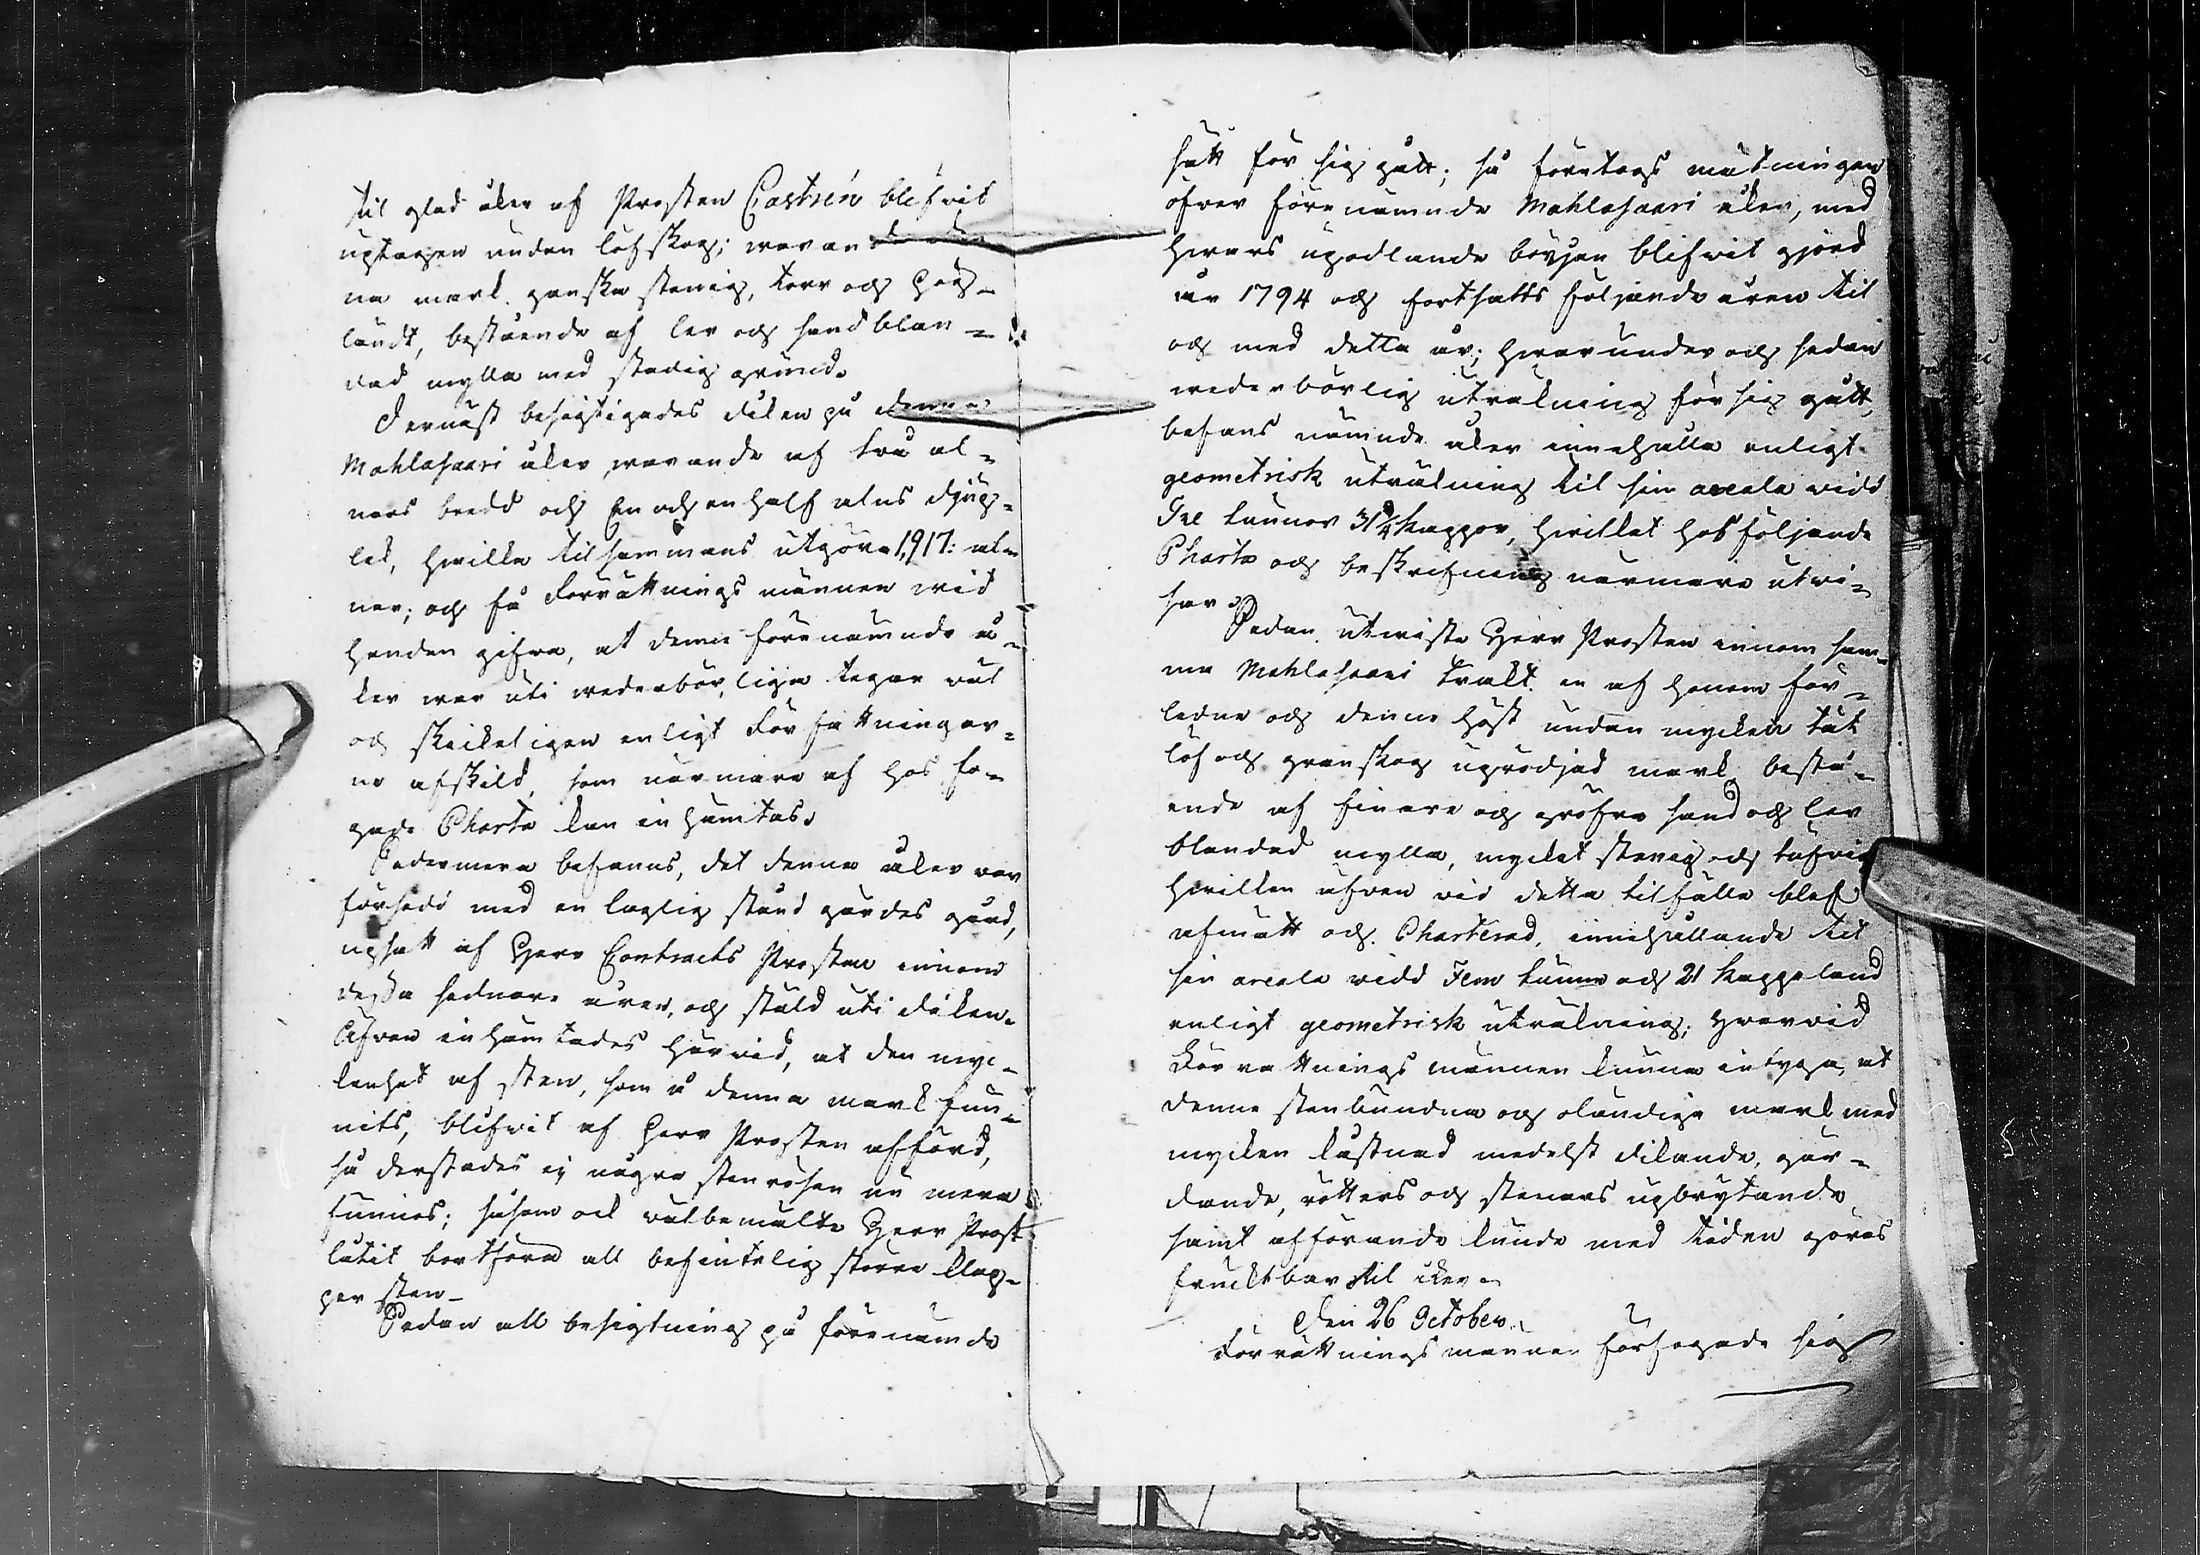 til glad åker af Prosten Castrén blifvit
uptagen undan löfskog; warande den-
na mark ganska stenig, torr och hög-
ländt, bestående af ler och sandblan-
dad mylla med stadig grund.
Dernäst besigtigades diken på denna
Mahlasaari åker warande af två al-
nars bredd och En och en half alns djup-
lek, hwilka tilsammans utgöra 1,917: al-
nar; och få Förrättnings männen wid
handen gifva, at denna förenämnde å-
ker war uti wederbörliga tegar wäl
och skickeligen enligt Författningar-
ne afskild, som närmare af hos fo-
gade Charta kan inhämtas.
Vidermera befanns, det denna åker war
försedd med en laglig stånd gärdes gård,
upsatt af Herr Contracts Prosten innom
dessa sednare åren, och stäld uti diken.
Äfven inhämtades härvid, at den myc-
kenhet af sten, som å denna mark fun-
nits, blifvit af Herr Prosten afförd,
så derstädes ej några stenrösen nu mera
finnes; såsom ock wälbemälte Herr Prost
låtit bortföra all befintelig större klap-
per sten-
Sedan all besigtning på förenämnde
sätt för sig gått; så företogs mätningen
öfver förenämnde Mahlasaari åker, med
hwars upodlande början blifvit gjord
år 1794 och fortsatts följande åren til
och med detta år; hwarunder och sedan
wederbörlig uträkning för sig gått,
befans nämnde åker innehålla enligt
geometrisk uträkning til sin areala widd
Tre tunnor 31 1/4 kappor, hwilket hos följande
Charta och beskrifning närmare utwi-
sar.
Sedan utwiste Herr Prosten innom sam-
ma Mahlasaari trakt en af honom för-
ledne och denne höst undan mycken tät
löf och granskog uprödjad mark bestå-
ende af finare och gröfre sand och ler
blandad mylla, mycket stenig och tufvig
hwilken äfven vid detta tilfälle blef
afmätt och Charterad, innehållande til
sin areala widd Fem tunne och 21 kappeland
enligt geometrisk uträkning; Hwarvid
Förrättnings männen kunna intyga, at
denna stenbundna och oländiga mark med
mycken kostnad medelst dikande, gär-
dande, rötters och stenars upbrytande
samt afförande kunde med tiden göras
fruktbar til åker.
Den 26 October.
Förrättnings männen förfogade sig